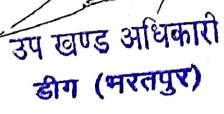 उप खण्ड अधिकारी
डीग (भरतपुर)